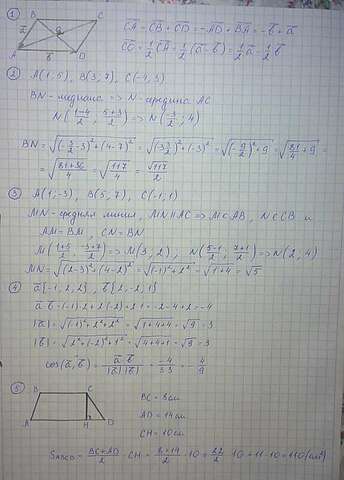 ① B C
a O
A b D
CA = CB + CD = -AD + BA = -b + a
CO = 1/2 CA = 1/2 (a - b) = 1/2 a - 1/2 b
② A(1,5), B(3,7), C(-4,3)
BN - медиана => N - середина AC
N((1-4)/2; (5+3)/2) => N(-3/2; 4)
BN = √((-3/2 - 3)² + (4-7)²) = √((-9/2)² + (-3)²) = √((-9/2)² + 9) = √(81/4 + 9) =
= √((81+36)/4) = √(117/4) = √117/2
③ A(1,-3), B(5,7), C(-1,1)
MN - средняя линия, MN || AC => M ∈ AB, N ∈ CB и
AM = BM, CN = BN
M((1+5)/2; (-3+7)/2) => M(3,2), N((5-1)/2; (7+1)/2) => N(2,4)
MN = √((2-3)² + (4-2)²) = √((-1)² + 2²) = √(1+4) = √5
④ a{-1,2,2}, b{2,-2,1}
a b = (-1)·2 + 2·(-2) + 2·1 = -2 - 4 + 2 = -4
|a| = √((-1)² + 2² + 2²) = √(1+4+4) = √9 = 3
|b| = √(2² + (-2)² + 1²) = √(4+4+1) = √9 = 3
cos(a,b) = a b / |a| |b| = -4/3·3 = -4/9
⑤ B C
A H D
BC = 8см
AD = 14см
CH = 10см
SABCD = (BC+AD)/2 · CH = (8+14)/2 · 10 = 22/2 · 10 = 11·10 = 110 (см²)